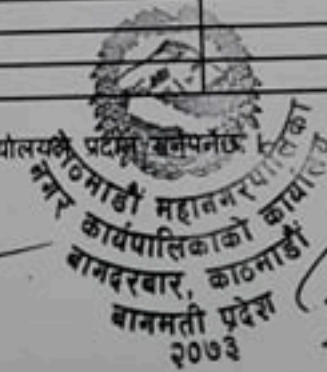 प्रदान गर्नुपर्नेछ ।
काठमाडौं महानगरपालिका
नगर कार्यपालिकाको कार्यालय
बागदरबार, काठमाडौं
बागमती प्रदेश
२०७३